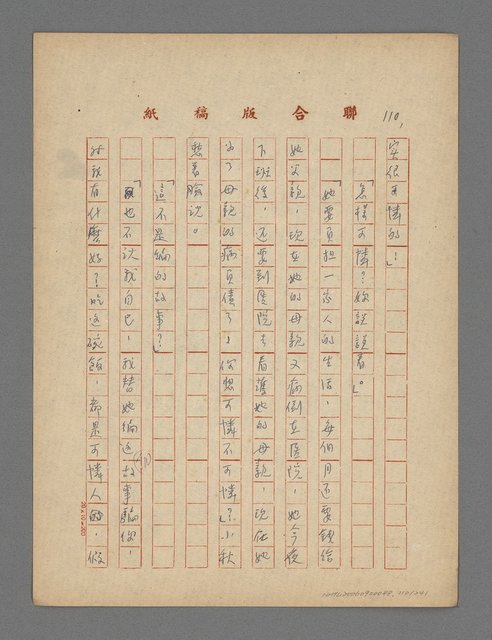 聯合版稿紙
110,
实很可憐的！」
「怎樣可憐？妳説説看。」
「她要負担一家人的生活，每個月还要錢给
她父親，现在她的母親又病倒在医院，她今夜
下班後，还要到医院去看護她的母親，现在她
为了母親的病負债了！你想可憐不可憐？」小秋
愁着臉説。
「這不是編的故事？」
「我也不认我自己，我替她编这故事騙你，
对我有什麼好？吃这碗飯，都是可憐人的，假
20×10=200